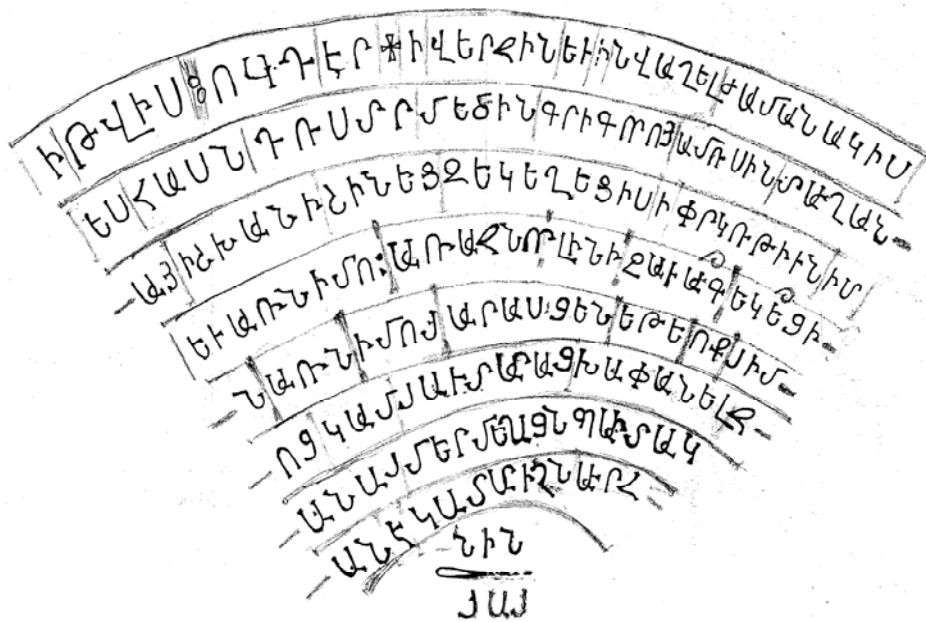 Ի ԹՎԻՍ : ՈՎԴ ԷՐ ✠ Ի ՎԵՐՋԻՆ ԵՒ ԻՆՎԱՂԵԼ ԺԱՄԱՆԱԿԻՍ
ԵՍ ՀԱՍՆ ԴՌՍՄՐ ՄԵԾԻՆ ԳՐԻԳՈՐՈՅ ԱՄՌՍԻՆ
ԱՅ ԻՇԽԱՆԻ ՇԻՆԵՑԶԵԿԵՂԵՑԻՍ Ի ՓՐԿՌԹԻՒՆ ԻՄ
ԵՒ ԱՌՆ ԻՄՈ : ԱՌԱՀՆՈՐ ԼԻՆԻ
Ն ԱՌՆ ԻՄՈՅ ԱՐԱՍՑԵՆ ԵԹԵ ՈՔ ՅԻՄ
ՈՑ ԿԱՄ ՅԱՒՏԱՐԱՑ ԽԱՓԱՆԵԼ
ԱՆԱՅ ՄԵՐ ՄԵՂԱՑՆ ՊԱՏՍԱԿ
ԱՆԷ ԿԱՄ
ՆԻՆ
ՅԱՅ